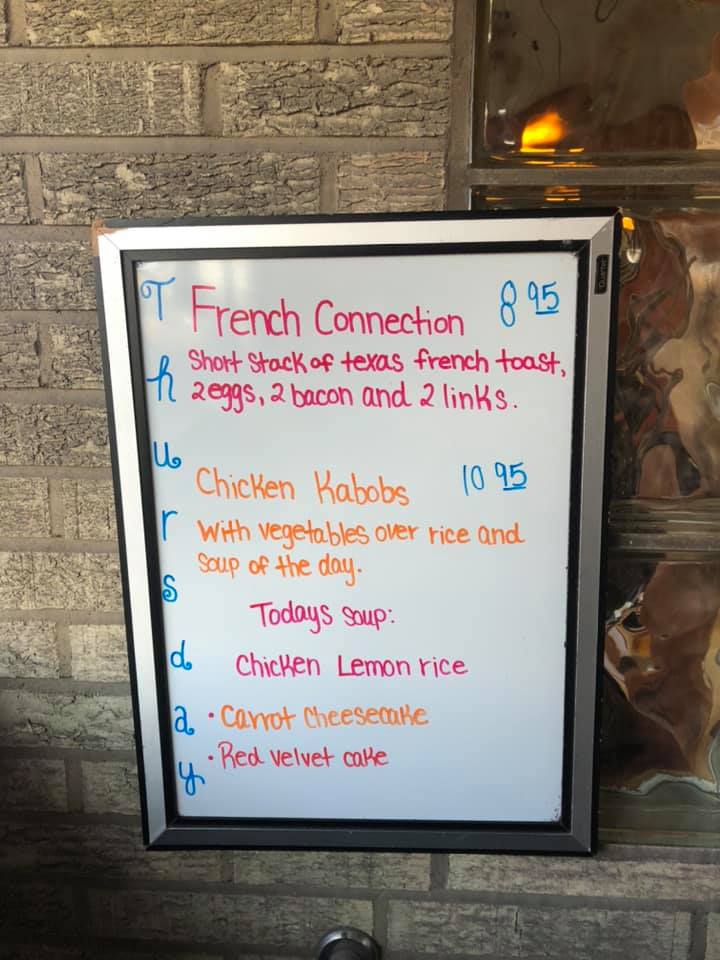 Thursday
French Connection 8 95
Short Stack of texas french toast,
2 eggs, 2 bacon and 2 links.
Chicken Kabobs 10 95
With vegetables over rice and
Soup of the day.
Todays soup:
Chicken Lemon rice
• Carrot Cheesecake
• Red velvet cake